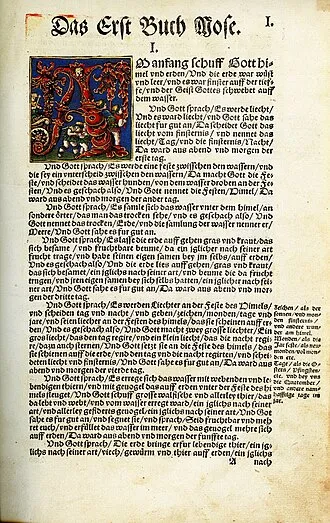 Das Erst Buch Mose.
I.
I.
M anfang schuff Gott hi=
mel vnd erden/ Vnd die erde war wüst
vnd leer/ vnd es war finster auff der tief=
fe/ vnd der Geist Gottes schwebet auff
dem wasser.
Vnd Gott sprach/ Es werde liecht/
Vnd es ward liecht/ vnd Gott sahe das
liecht fur gut an/ Da scheidet Gott das
liecht vom finsternis/ vnd nennet das
liecht/ Tag/ vnd die finsternis/ Nacht/
Da ward aus abend vnd morgen der
erste tag.
Vnd Gott sprach/ Es werde eine feste zwisschen den wassern/ vnd
die sey ein vnterscheid zwisschen den wassern/ Da macht Gott die Fe=
ste/ vnd scheidet das wasser hunden/ von dem wasser droben an der Fe=
sten/ Vnd es geschach also/ Vnd Gott nennet die Festen/ Himel/ Da
ward aus abend vnd morgen der ander tag.
Vnd Gott sprach/ Es samle sich das wasser vnter dem himel/ an
sondere örter/ das man das trocken sehe/ vnd es geschach also/ Vnd
Gott nennet das trocken/ Erde/ vnd die samlung der wasser nennet er/
Meere/ Vnd Gott sahe es fur gut an.
Vnd Gott sprach/ Es lasse die erde auff gehen gras vnd kraut/ das
sich besame/ vnd fruchtbare beume/ da ein jglicher nach seiner art
frucht trage/ vnd habe seinen eigen samen bey jm selbs/ auff erden/
Vnd es geschach also/ Vnd die erde lies auff gehen/ gras vnd kraut/
das sich besamet/ ein jglichs nach seiner art/ vnd beume die da fruch
trugen/ vnd jren eigen samen bey sich selbs hatten/ ein jglicher nach
seiner art/ Vnd Gott sahe es fur gut an/ Da ward aus abend vnd mor=
gen der dritte tag.
Vnd Gott sprach/ Es werden Liechter an der Feste des Himels/
vnd scheiden tag vnd nacht/ vnd geben/ zeichen/ monden/ tage vnd
jare/ vnd seien liechter an der Festen des himels/ das sie scheinen auff er=
den/ Vnd es geschach also/ Vnd Gott macht zwey grosse liechter/ Ein
gros liecht/ das den tag regire/ vnd ein klein liecht/ das die nacht regi=
re/ dazu auch sternen/ Vnd Gott setzt sie an die Feste des himels/ das
sie schienen auff die erde/ vnd den tag vnd die nacht regirten/ vnd schei=
deten liecht vnd finsternis/ Vnd Gott sahe es fur gut an/ Da ward aus
abend vnd morgen der vierde tag.
Vnd Gott sprach/ Es errege sich das wasser mit webenden vnd le=
bendigen thieren/ vnd mit geuogel das auff erden vnter der Feste des hi
mels fleuget/ Vnd Gott schuff grosse walfische vnd allerley thier/ das
da lebt vnd webt/ vnd vom wasser erreget ward/ ein jglichs nach seiner
art/ vnd allerley gefidderts geuogel/ ein jglichs nach seiner art/ Vnd Gott
sahe es fur gut an/ vnd segenet sie/ vnd sprach/ Seid fruchtbar vnd meh
ret euch/ vnd erfüllet das wasser im meer/ vnd das geuogel mehre sich
auff erden/ Da ward aus abend vnd morgen der funffte tag.
Vnd Gott sprach/ Die erde bringe erfur lebendige thier/ ein jg=
lichs nach seiner art/ viech/ gewürm vnd thier auff erden/ ein jglichs
A
nach
Zeichen/ als der
sonnen/ vnd mon=
den finsternis/
vnd andere wun=
der am himel.
Monden/ als die
New monden/ vol=
monden etc.
Tage/ als die Os=
tertag/ Pfingsten/
etc. vnd bey vns
die Quatember/
vnd andere nam=
hafftige tage im
jar.